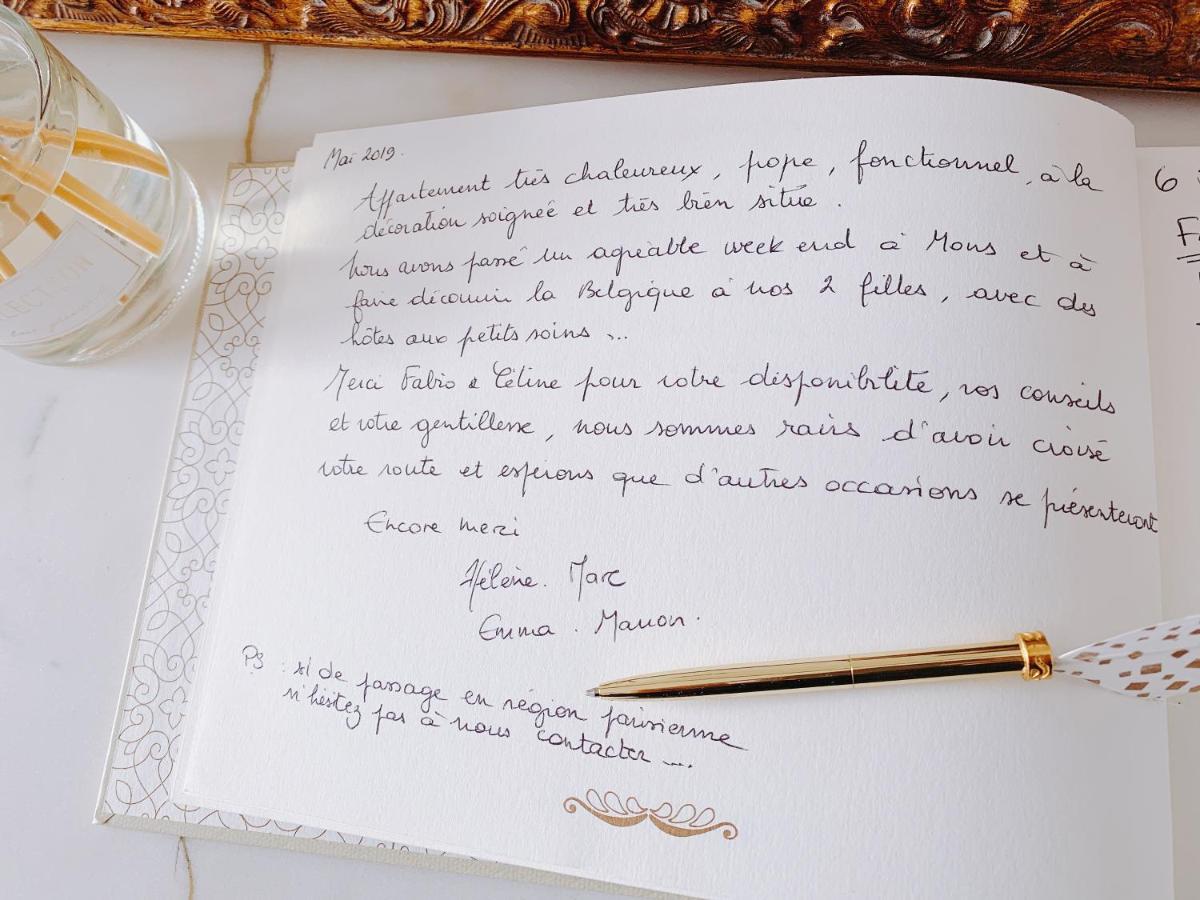 Mai 2019.
Appartement très chaleureux, pope, fonctionnel, à la
décoration soignée et très bien située.
Nous avons passé un agréable week end à Mons et à
faire découvrir la Belgique à nos 2 filles, avec des
hôtes aux petits soins ...
Merci Fabio & Céline pour votre disponibilité, vos conseils
et votre gentillesse, nous sommes ravis d'avoir croisé
votre route et espérons que d'autres occasions se présenteront
Encore merci
Hélène. Marc
Emma. Manon.
PS : si de passage en région parisienne
n'hésitez pas à nous contacter ....
6